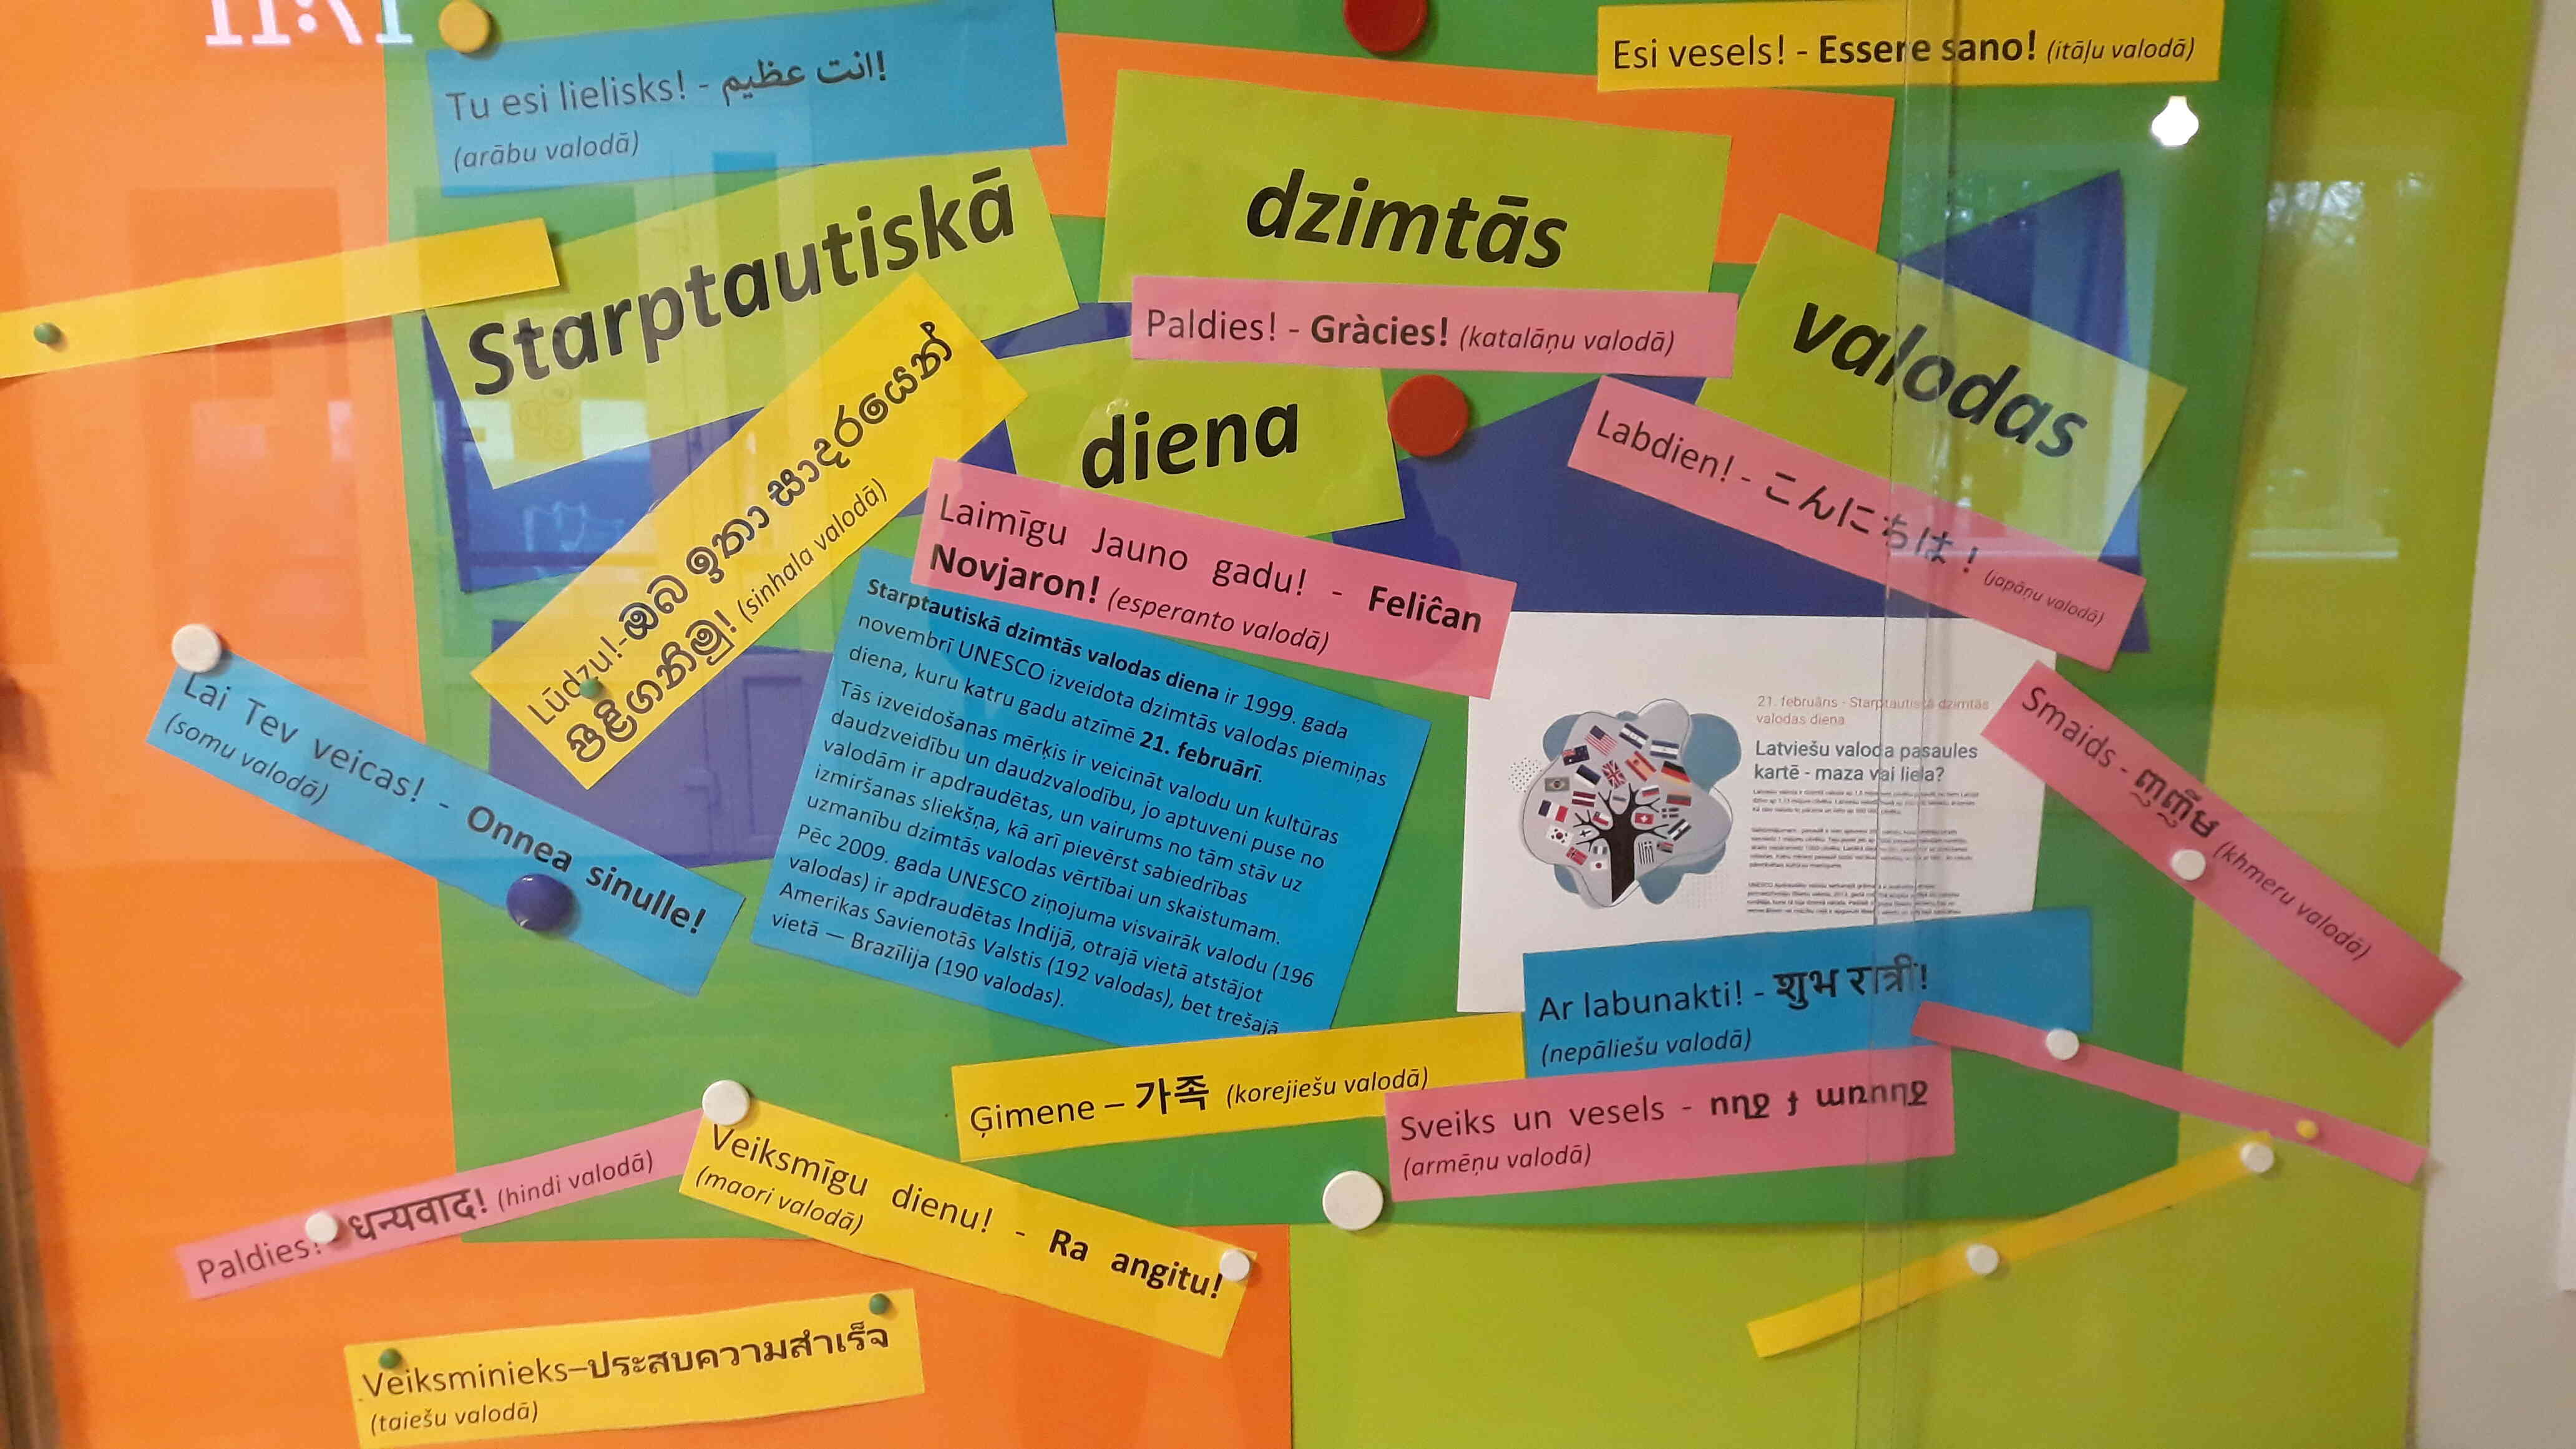 Tu esi lielisks! - انت عظيم!
(arābu valodā)
Esi vesels! - Essere sano! (itāļu valodā)
Starptautiskā
dzimtās
valodas
diena
Paldies! - Gràcies! (katalāņu valodā)
Labdien! - こんにちは! (japāņu valodā)
Lūdzu!-ඔබ ඉතා සාදරයෙන්
පිළිගනිමු! (sinhala valodā)
Laimīgu Jauno gadu! - Feliĉan
Novjaron! (esperanto valodā)
Starptautiskā dzimtās valodas diena ir 1999. gada
novembrī UNESCO izveidota dzimtās valodas piemiņas
diena, kuru katru gadu atzīmē 21. februārī.
Tās izveidošanas mērķis ir veicināt valodu un kultūras
daudzveidību un daudzvalodību, jo aptuveni puse no
valodām ir apdraudētas, un vairums no tām stāv uz
izmiršanas sliekšņa, kā arī pievērst sabiedrības
uzmanību dzimtās valodas vērtībai un skaistumam.
Pēc 2009. gada UNESCO ziņojuma visvairāk valodu (196
valodas) ir apdraudētas Indijā, otrajā vietā atstājot
Amerikas Savienotās Valstis (192 valodas), bet trešajā
vietā — Brazīlija (190 valodas).
21. februāris - Starptautiskā dzimtās
valodas diena
Latviešu valoda pasaules
kartē - maza vai liela?
Lai Tev veicas! - Onnea sinulle!
(somu valodā)
Smaids - ញញឹម (khmeru valodā)
Ar labunakti! - शुभ रात्री!
(nepāliešu valodā)
Ģimene – 가족 (korejiešu valodā)
Sveiks un vesels - ողջ և առողջ
(armēņu valodā)
Paldies! धन्यवाद! (hindi valodā)
Veiksmīgu dienu! - Ra angitu!
(maori valodā)
Veiksminieks–ประสบความสำเร็จ
(taiešu valodā)